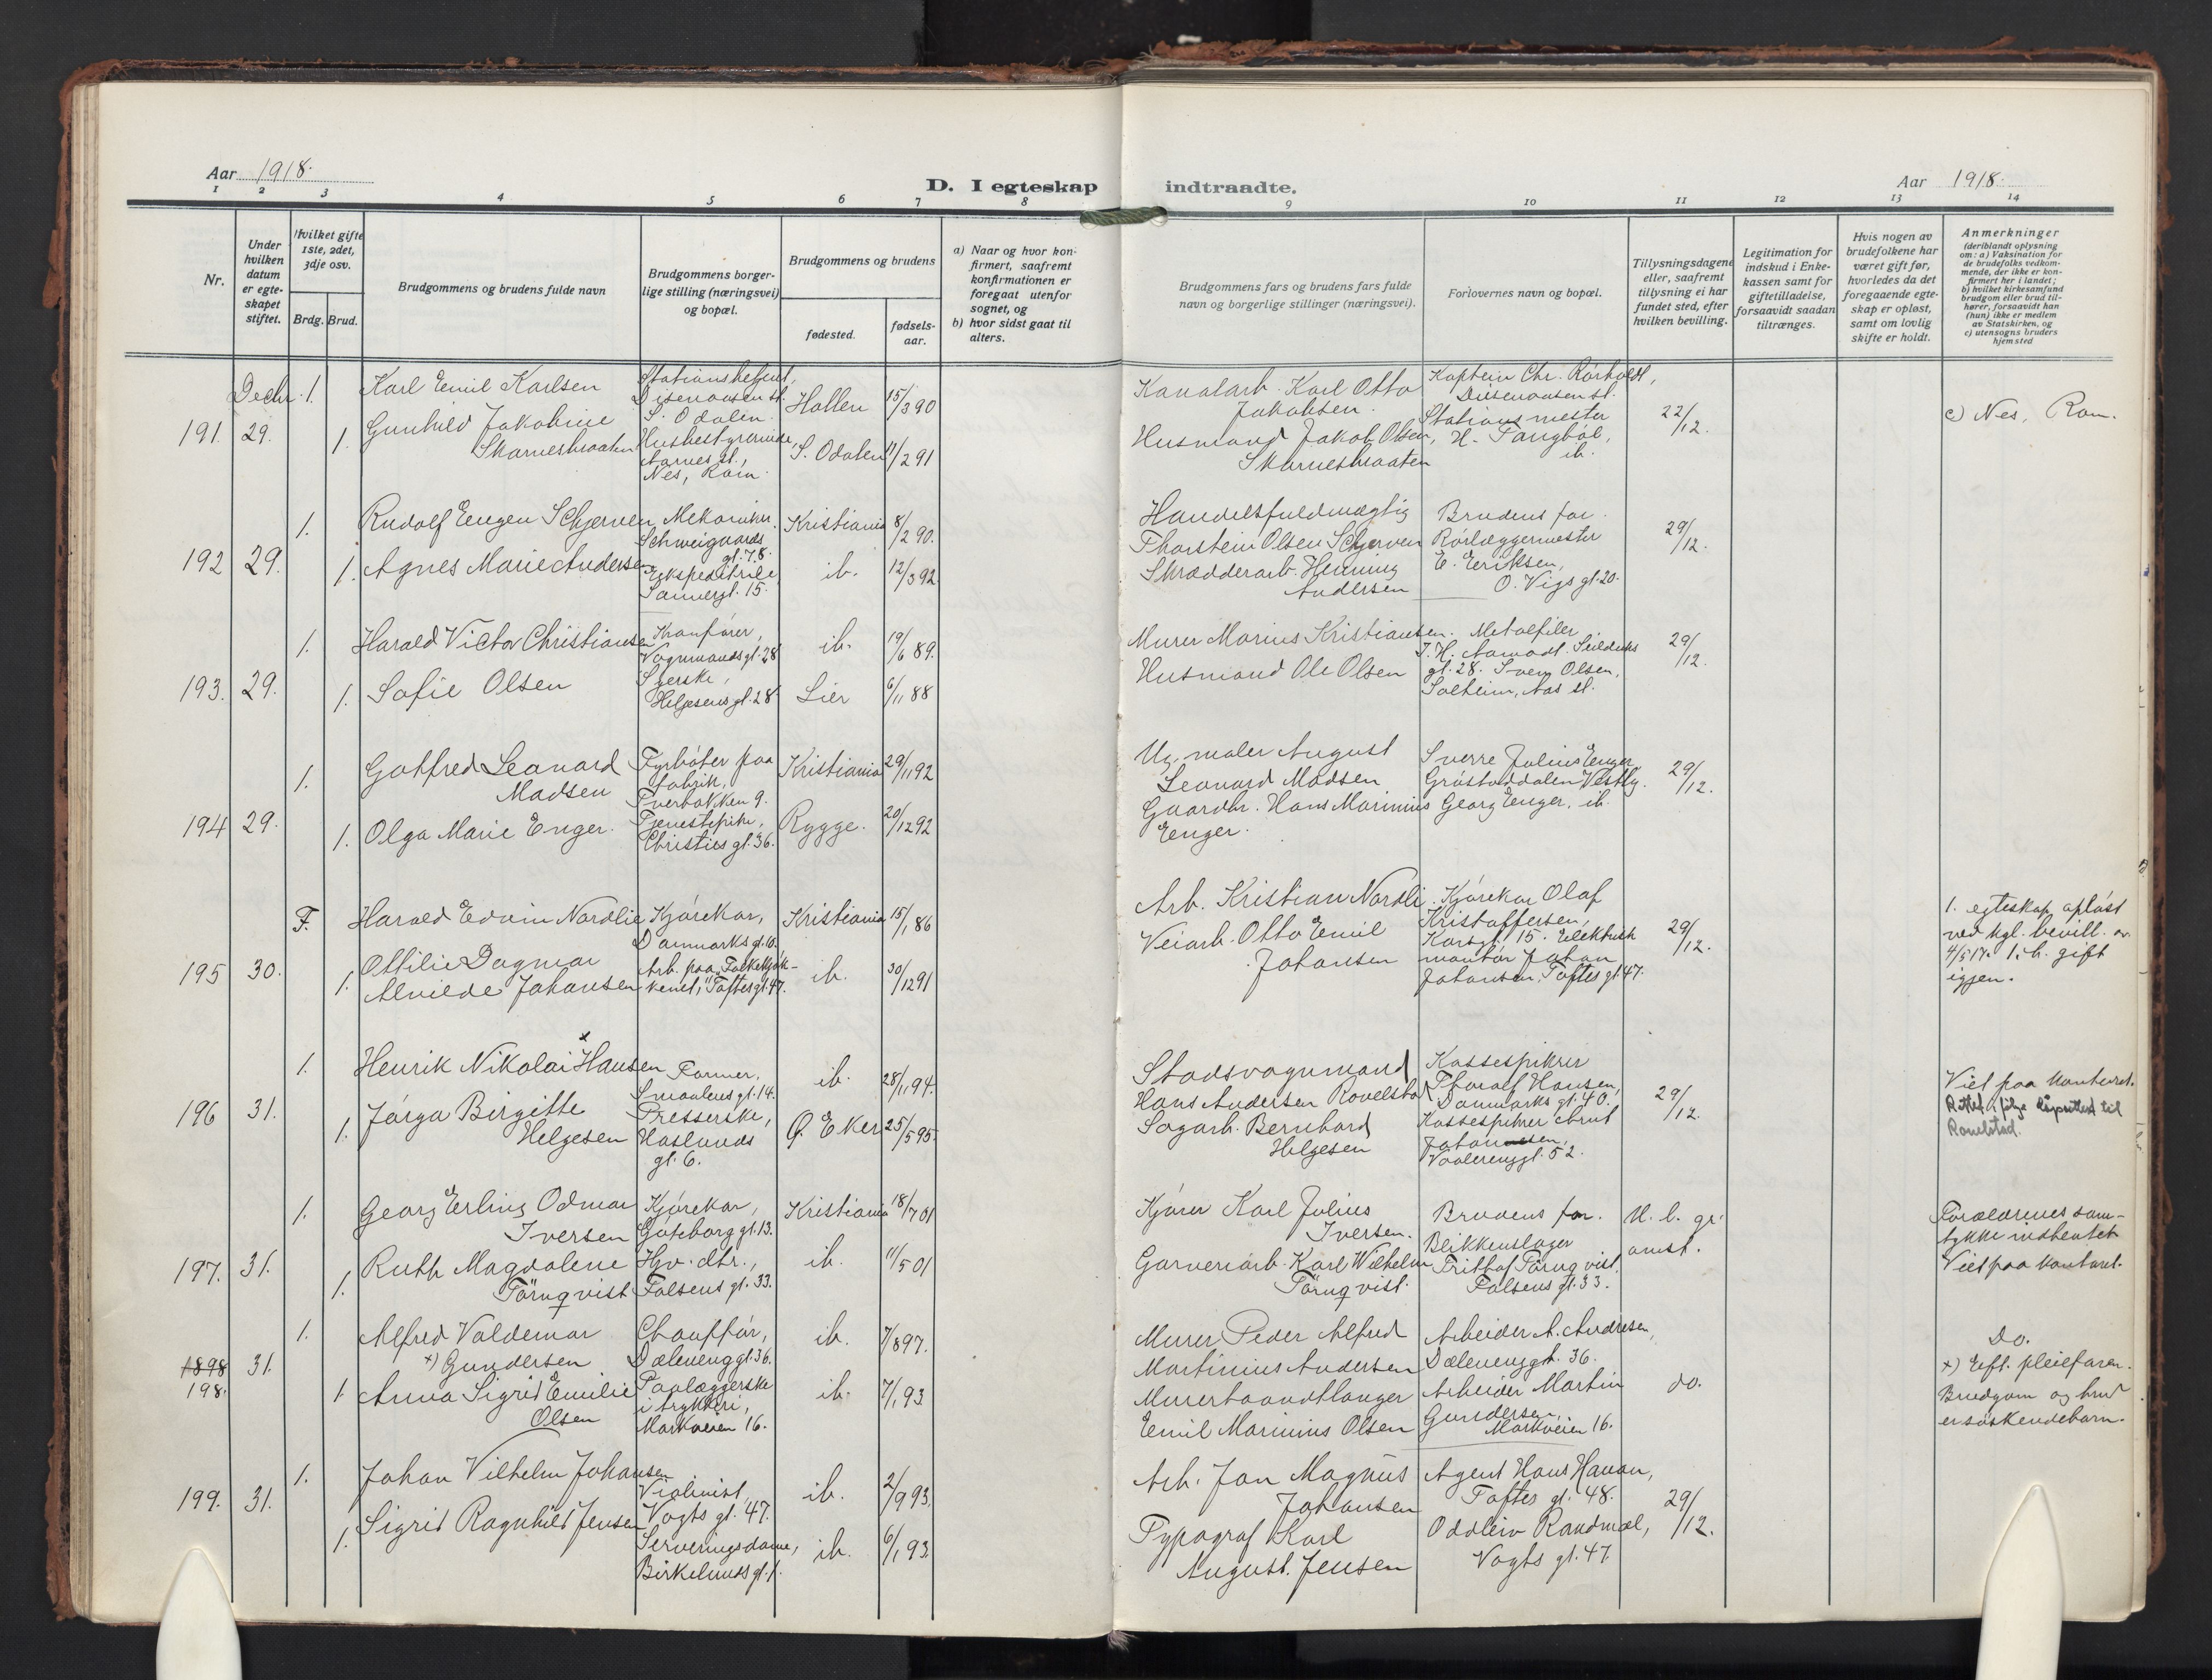 Aar 1918.
D. I egteskap indtraadte.
Aar 1918.
1 2 3 4 5 6 7 8 9 10 11 12 13 14
Nr.
Under hvilken datum er egteskapet stiftet.
Hvilket gifte 1ste, 2det, 3dje osv.
Brdg. Brud.
Brudgommens og brudens fulde navn
Brudgommens borgerlige stilling (næringsvei) og bopæl.
Brudgommens og brudens
fødested.
fødselsaar.
a) Naar og hvor konfirmert, saafremt konfirmationen er foregaat utenfor sognet, og
b) hvor sidst gaat til alters.
Brudgommens fars og brudens fars fulde navn og borgerlige stillinger (næringsvei).
Forlovernes navn og bopæl.
Tillysningsdagene eller, saafremt tillysning ei har fundet sted, efter hvilken bevilling.
Legitimation for indskud i Enkekassen samt for giftetilladelse, forsaavidt saadan tiltrænges.
Hvis nogen av brudefolkene har været gift før, hvorledes da det foregaaende egteskap er opløst, samt om lovlig skifte er holdt.
Anmerkninger
(deriblandt oplysning om: a) Vaksination for de brudefolks vedkommende, der ikke er konfirmert her i landet;
b) hvilket kirkesamfund brudgom eller brud tilhører, forsaavidt han (hun) ikke er medlem av Statskirken, og
c) utensogns bruders hjemsted
191 Decbr. 29.
1. Karl Emil Karlsen
Stationsbetjent, Disenaasen st. S. Odalen.
Hollen 15/3 90
Kanalarb. Karl Otto Jakobsen.
Kaptein Chr. Rørholdt, Disenaasen st.
22/12.
c) Nes, Rom.
1. Gunhild Jakobine Skarnesbraaten
Husbestyrerinde, Aarnes st., Nes, Rom.
S. Odalen 11/2 91
Husmand Jakob Olsen, Skarnesbraaten
Stationsmester H. Tangbøl, ib.
192 29.
1. Rudolf Eugen Schjerven
Mekaniker. Schweigaards gt. 78.
Kristiania 8/2 90.
Handelsfuldmægtig Thorstein Olsen Schjerven
Brudens far.
29/12.
1. Agnes Marie Andersen
Ekspeditrice Sannergt. 15.
ib. 12/3 92
Skrædderarb. Henning Andersen
Rørlæggermester E. Eriksen, O. Vigs gt. 20.
193. 29.
1. Harald Victor Christiansen
Kranfører, Vognmandsgt. 28
ib. 19/6 89.
Murer Marius Kristiansen.
Metalfiler J. H. Aamodt. Seilduks gt. 28.
29/12.
1. Sofie Olsen
Syerske, Helgesens gt. 28
Lier 6/11 88
Husmand Ole Olsen
Sven Olsen, Solheim, Aas st.
194 29.
1. Gotfred Leonard Madsen
Fyrbøter paa fabrik, Tverbakken 9.
Kristiania 29/11 92
Ug. maler August Leonard Madsen
Sverre Julius Enger Grøstaddalen Vestby.
29/12.
1. Olga Marie Enger.
Tjenestepike, Christies gt. 36.
Rygge. 20/12 92
Gaardbr. Hans Marinius Enger.
Georg Enger, ib.
195 30.
F. Harald Edvin Nordlie
Kjørekar, Danmarks gt. 10.
Kristiania 15/1 86
Arb. Kristian Nordli.
Kjørekar Olaf Kristoffersen, Korsgt. 15.
29/12.
1. egteskap opløst ved kgl. bevill. av 4/5 17. 1. h. gift igjen.
1. Ottilie Dagmar Alvilde Johansen
Arb. paa "Folkekjøkkenet," Toftesgt. 47.
ib. 30/12 91
Veiarb. Otto Emil Johansen
Elektrisk montør Johan Johansen, Toftes gt. 47.
196 31.
1. Henrik Nikolai x Hansen
Former, Smaalens gt. 14.
ib. 28/11 94.
Stadsvognmand Hans Andersen Rovelstad
Kassespikrer Thoralf Hansen, Danmarks gt. 40.
29/12.
Viet paa kontoret.
1. Jørga Birgitte Helgesen
Presserske, Haslunds gt. 6.
Ø. Eker 25/5 95
Sagarb. Bernhard Helgesen
Kassespikrer Arnt Johansen, Vaalerenggt. 52.
197. 31.
1. Georg Erling Odmar Iversen
Kjørekar, Gøteborg gt. 13.
Kristiania 18/7 01
Kjører Karl Julius Iversen.
Brudens far.
Forældrenes samtykke indhentet
Viet paa kontoret.
1. Ruth Magdalene Törnqvist
Hjv. dtr., Falsens gt. 33.
ib. 11/5 01
Garveriarb. Karl Wilhelm Törnqvist.
Blikkenslager Frithof Törnqvist, Falsens gt. 33.
1898 198. 31.
1. Alfred Valdemar x) Gundersen
Chauffør, Dælenenggt. 36.
ib. 7/8 97.
Murer Peder Alfred Martinius Andersen
Arbeider A. Andresen, Dælenenggt. 36.
do.
Do.
x) Eft. pleiefaren.
Brudgom og brud er søskendebarn.
1 Anna Sigrid Emilie Olsen
Paalæggerske i trykkeri, Markveien 16.
ib. 7/1 93.
Murerhaandtlanger Emil Marinius Olsen
Arbeider Martin Gundersen, Markveien 16.
199. 31.
1. Johan Vilhelm Johansen
Violinist, Vogts gt. 47.
ib. 2/9 93.
Arb. Jon Magnus Johansen
Agent Hans Hanan, Toftes gt. 48.
29/12.
1. Sigrid Ragnhild Jensen
Serveringsdame, Birkelunds gt. 1.
ib. 6/1 93.
Typograf Karl August Jensen
Oddleiv Randmæl, Vogts gt. 47.